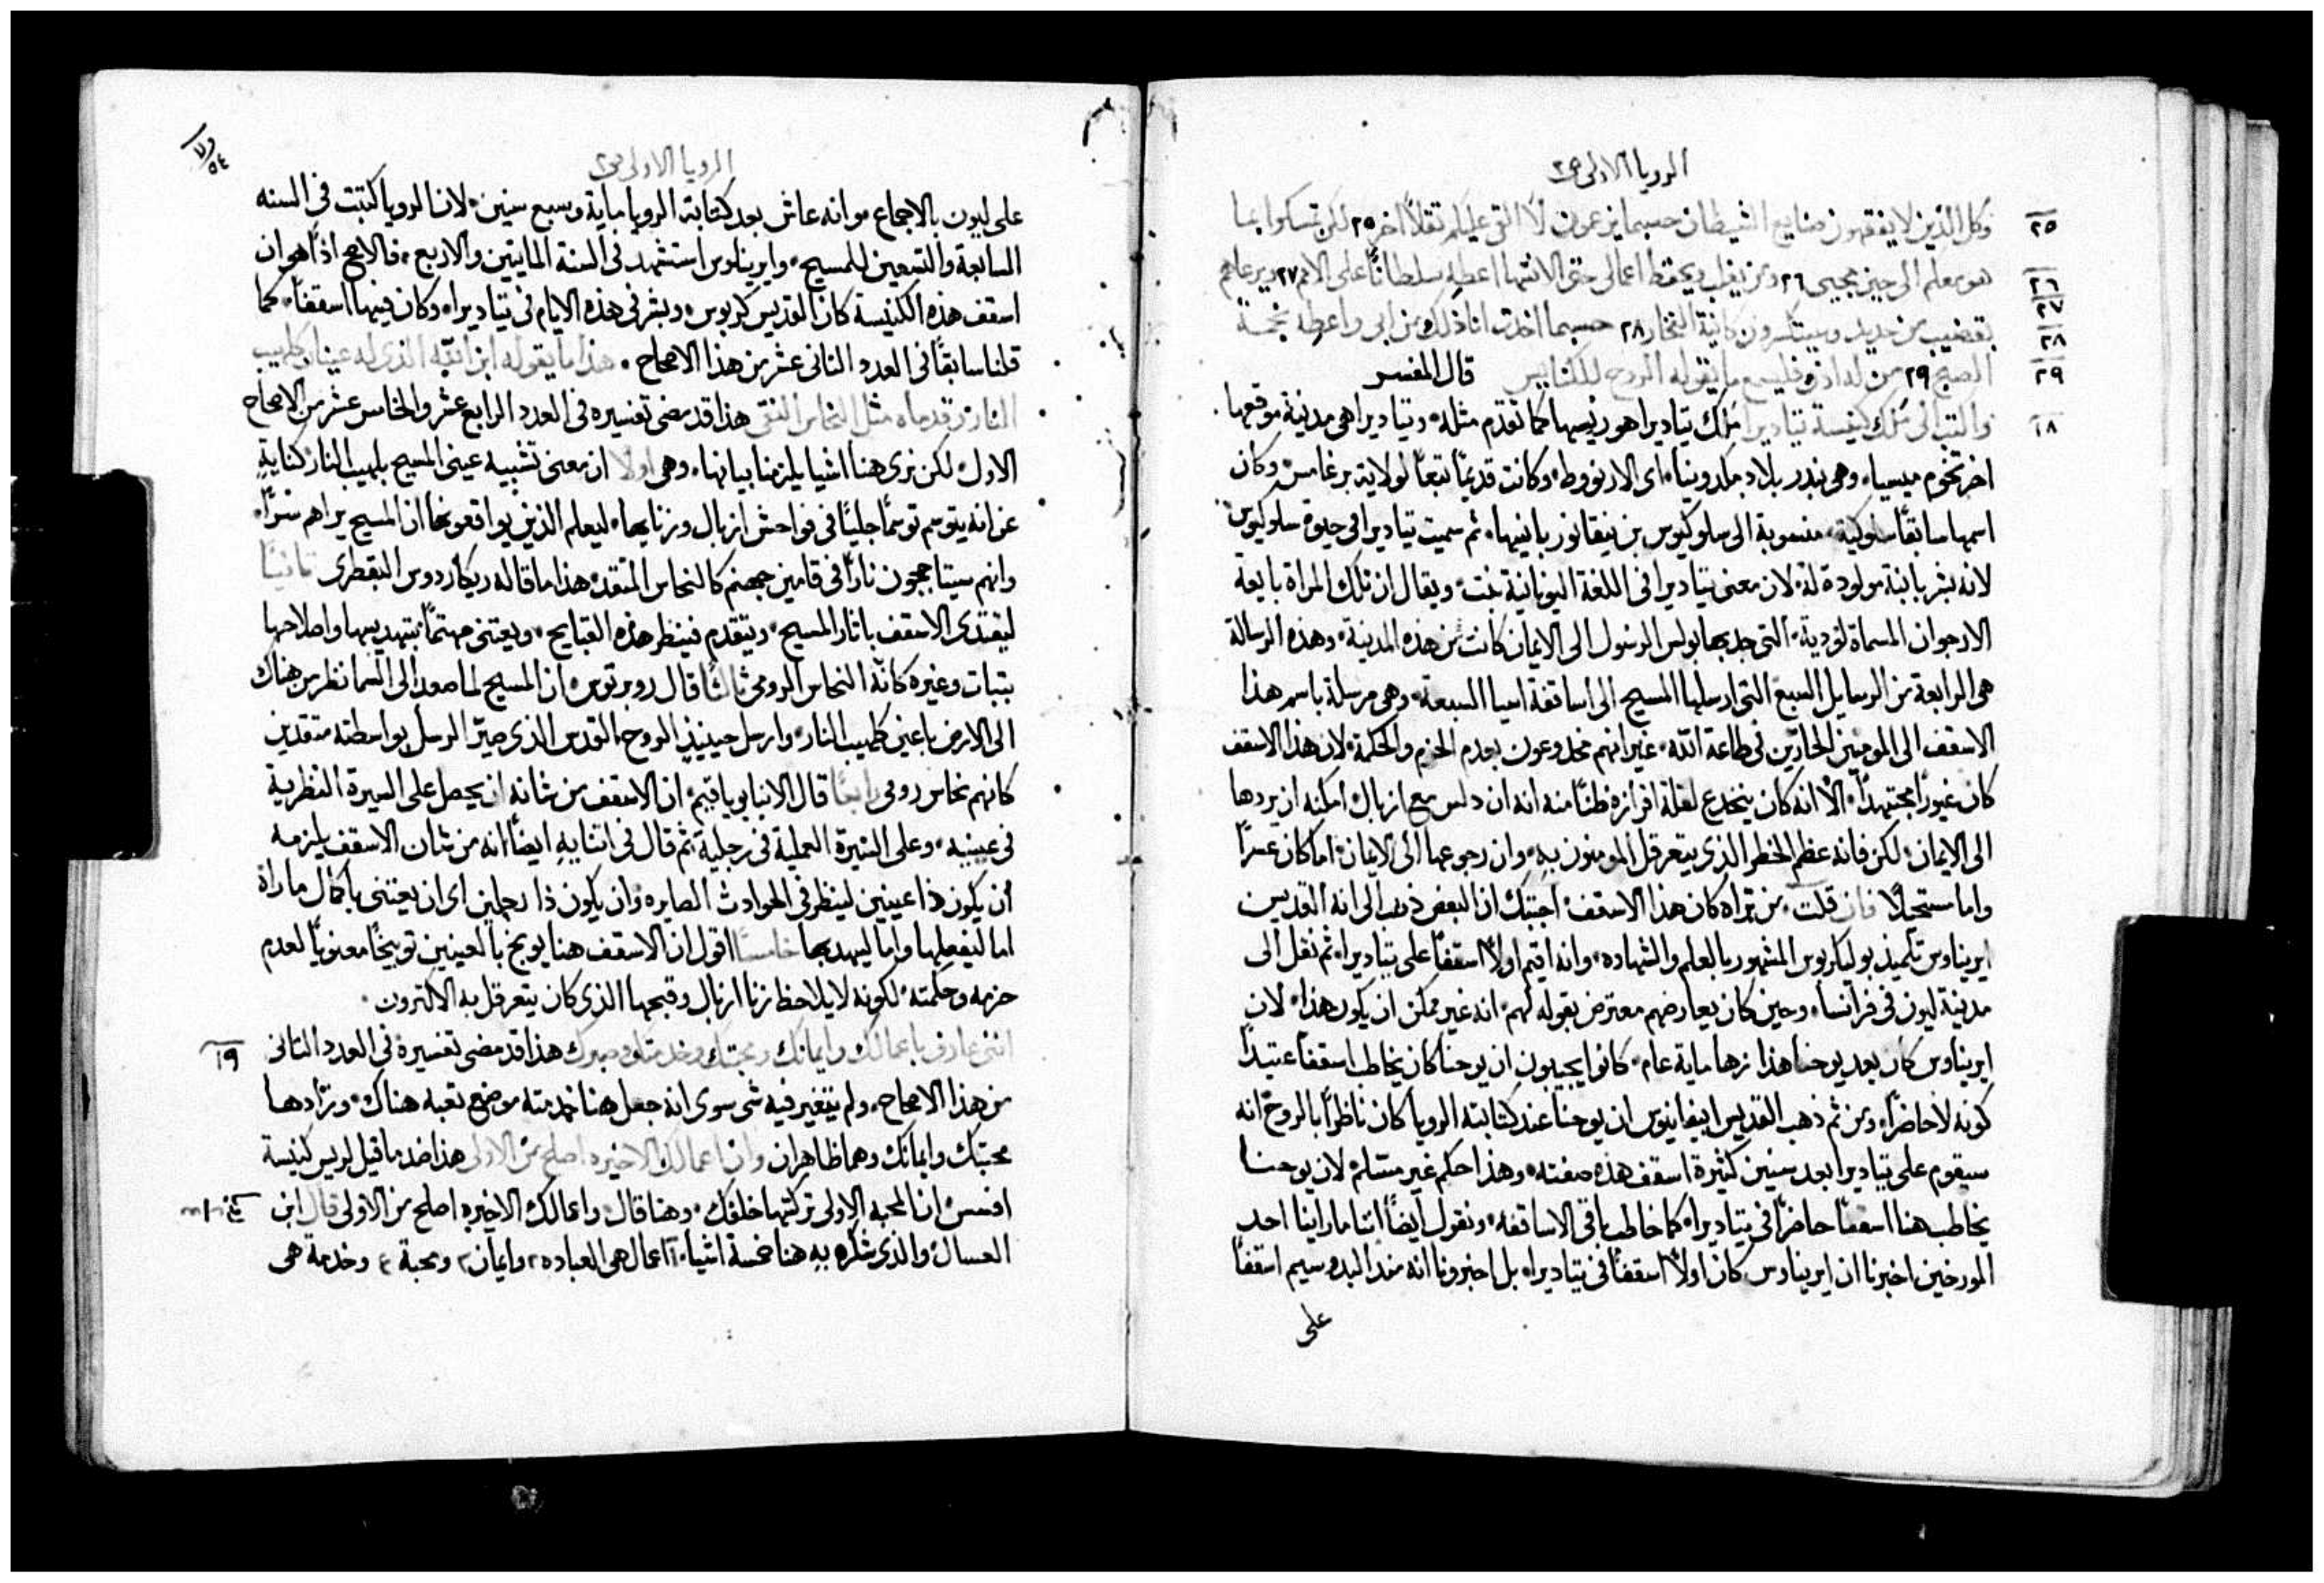 الرويا الاولى ص٢
٢٥ وكل الذين لا يفقهون صنايع الشيطان حسبما يزعمون لا القى عليكم ثقلاً اخر ٢٥ لكن تمسكوا بما
٢٦ ٢٧ هو معلم الى حين مجيى ٢٦ ومن يغلب ويحفظ اعمالى حتى الانتها اعطه سلطاناً على الامم ٢٧ ويرعاهم
٢٨ بقضيب من حديد وسيتكسرون كانية الفخار ٢٨ حسبما اخذت انا ذلك من ابى واعطه نجمة
٢٩ الصبح ٢٩ من له اذن فليسمع ما يقوله الروح للكنايس قال المفسر
١٨ واكتب الى ملك كنيسة تياديرا ملك تياديرا هو ريسها كما تقدم مثله وتياديرا هى مدينة موقعها
اخر تخوم ميسيا وهى بندر بلاد مكدونيا اى الارنووط وكانت قديماً تبعاً لولاية برغامس وكان
اسمها سابقاً سلوكية منسوبة الى سلوكيوس بن نيقانور بانيها ثم سميت تياديرا فى حيوة سلوكيوس
لانه بشر بابنة مولودة له لان معنى تياديرا فى اللغة اليونانية بنت ويقال ان تلك المراة بايعة
الارجوان المسماة لودية التى جذبها بولس الرسول الى الايمان كانت من هذه المدينة وهذه الرسالة
هى الرابعة من الرسايل السبع التى ارسلها المسيح الى اساقفة اسيا السبعة وهى مرسلة باسم هذا
الاسقف الى المومنين الحارّين فى طاعة الله غير انهم مخدوعون بعدم الحزم والحكمة لان هذا الاسقف
كان غيوراً مجتهداً الا انه كان ينخدع لقلة افرازه ظناً منه انه ان دلس مع ازبال امكنه ان يردها
الى الايمان لكن فاته عظم الخطر الذى يتعرقل المومنون به وان رجوعها الى الايمان اما كان عسراً
واما مستحيلاً فان قلت من تراه كان هذا الاسقف اجبتك ان البعض ذهب الى انه القديس
ايريناوس تلميذ بوليكربوس المشهور بالعلم والشهاده وانه اقيم اولاً اسقفاً على تياديرا ثم نقل الى
مدينة ليون فى فرانسا وحين كان يعارضهم معترض بقوله لهم انه غير ممكن ان يكون هذا لان
ايريناوس كان بعد يوحنا هذا نزها ماية عام كانوا يجيبون ان يوحنا كان يخاطب اسقفاً عتيداً
كونه لا حاضراً ومن ثم ذهب القديس ابيفانيوس ان يوحنا عند كتابته الرويا كان ناظراً بالروح انه
سيقوم على تياديرا بعد سنين كثيرة اسقف هذه صفته وهذا حكم غير مسلم لان يوحنا
يخاطب هنا اسقفاً حاضراً فى تياديرا كما خاطب باقى الاساقفه ونقول ايضاً اننا ما راينا احد
المورخين اخبرنا ان ايريناوس كان اولاً اسقفاً فى تياديرا بل اخبرونا انه منذ البدو سيم اسقفاً
على
الرويا الاولى ص٢
٥٤
على ليون بالاجماع وانه عاش بعد كتابة الرويا ماية وسبع سنين لان الرويا كتبت فى السنه
السابعة والتسعين للمسيح وايريناوس استشهد فى السنة المايتين والاربع فالاصح اذاً هو ان
اسقف هذه الكنيسة كان القديس كربوس وبشر فى هذه الايام فى تياديرا وكان فيها اسقفاً كما
قلنا سابقاً فى العدد الثانى عشر من هذا الاصحاح هذا ما يقوله ابن الله الذى له عينان كلهيب
النار وقدماه مثل النحاس النقى هذا قد مضى تفسيره فى العدد الرابع عشر والخامس عشر من الاصحاح
الاول لكن نرى هنا اشيا يلزمنا بيانها وهى اولاً ان معنى تشبيه عينى المسيح بلهيب النار كناية
عن انه يتوسم توسماً جلياً فى فواحش ازبال وزنايها ليعلم الذين يواقعونها ان المسيح يراهم سراً
وانهم سيتاججون ناراً فى قامين جهنم كالنحاس المتقد هذا ما قاله ريكاردوس البقطرى ثانياً
ليقتدى الاسقف باثار المسيح ويتقدم فينظر هذه القبايح ويعتنى مهتماً بتهديسها واصلاحها
بثبات وغيره كانه النحاس الرومى ثالثاً قال روبرتوس ان المسيح لما صعد الى السما نظر من هناك
الى الارض باعين كلهيب النار وارسل حينيذ الروح القدس الذى صير الرسل بواسطته متقدين
كانهم نحاس رومى رابعاً قال الانبا يوياقيم ان الاسقف من شانه ان يحصل على السيرة النظرية
فى عينيه وعلى السيرة العملية فى رجليه ثم قال فى اثنايه ايضاً انه من شان الاسقف يلزمه
ان يكون ذا عينين لينظر فى الحوادث الصايره وان يكون ذا رجلين اى ان يعتنى باكمال ما راه
اما ليفعلها واما ليهدبها خامساً اقول ان الاسقف هنا يوبخ بالعينين توبيخاً معنوياً لعدم
حزمه وحكمته لكونه لا يلاحظ زنا ازبال وقبحها الذى كان يتعرقل به الاكثرون
١٩ اننى عارف باعمالك وايمانك ومحبتك وخدمتك وصبرك هذا قد مضى تفسيره فى العدد الثانى
من هذا الاصحاح ولم يتغير فيه شى سوى انه جعل هنا خدمته موضع تعبه هناك وزادها
محبتك وايمانك وهما ظاهران وان اعمالك الاخيره اصلح من الاولى هذا ضد ما قيل لريس كنيسة
افسس ان المحبه الاولى تركتها خلفك وهنا قال واعمالك الاخيره اصلح من الاولى قال ابن
العسال والذى شكره به هنا خمسة اشيا ١ اعمال هى العباده ٢ وايمان ٣ ومحبة ٤ وخدمة هى